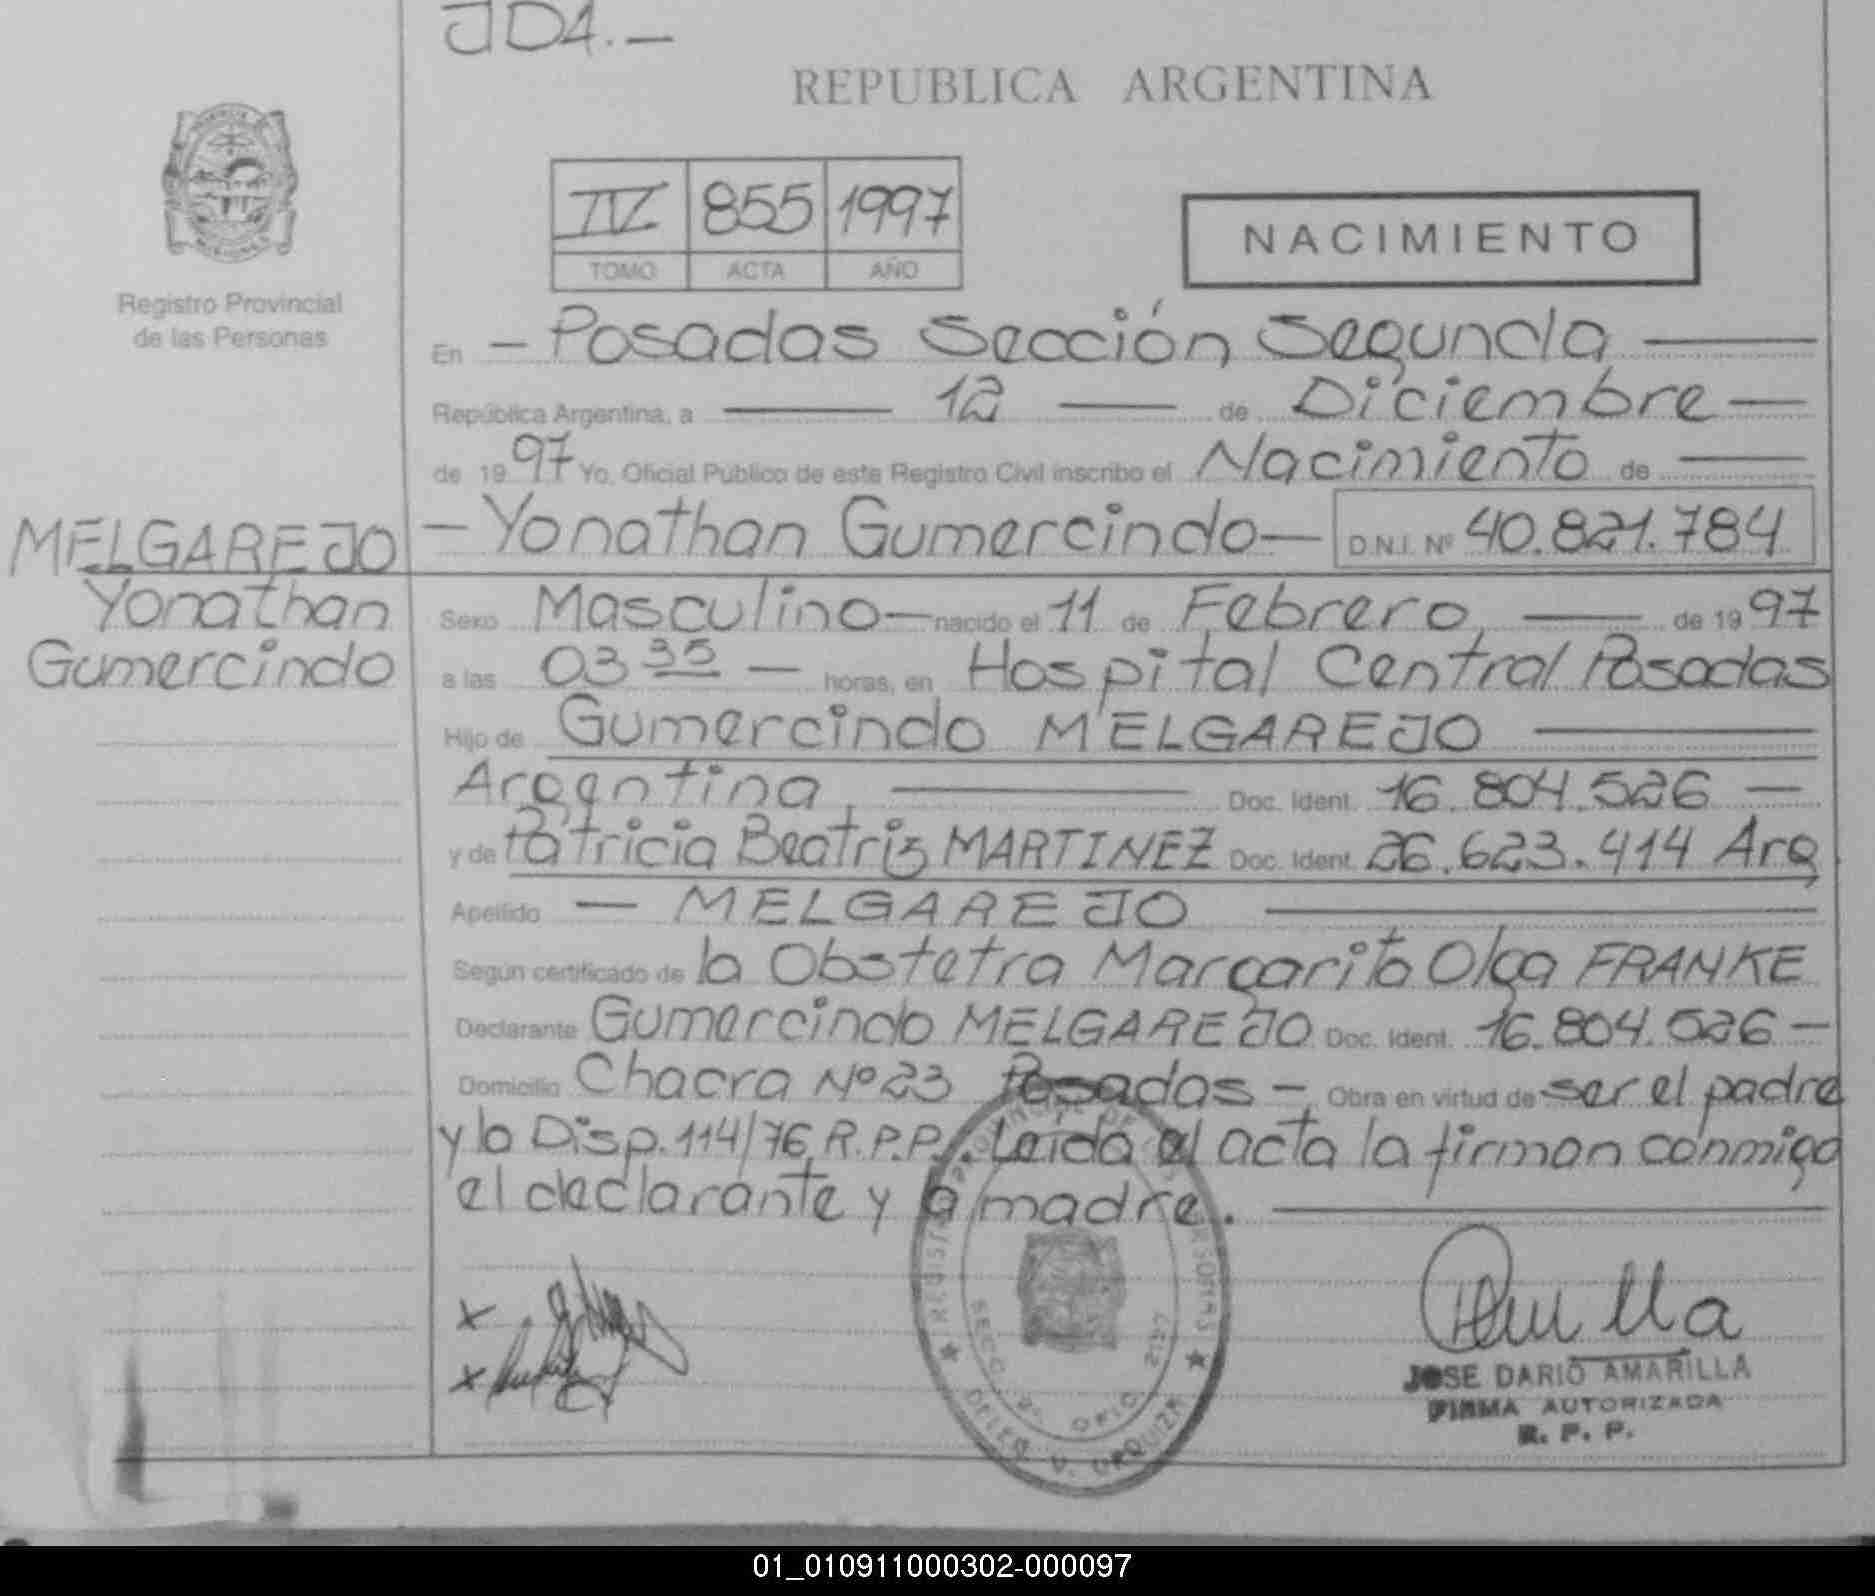 JDA.—
REPUBLICA ARGENTINA
Registro Provincial
de las Personas
IV 855 1997
TOMO ACTA AÑO
NACIMIENTO
En — Posadas Sección Segunda
República Argentina, a 12 de Diciembre —
de 1997 Yo, Oficial Público de este Registro Civil inscribo el Nacimiento de
MELGAREJO
Yonathan
Gumercindo
— Yonathan Gumercindo — D.N.I. Nº 40.821.784
Sexo Masculino — nacido el 11 de Febrero, de 1997
a las 03 35 — horas, en Hospital Central Posadas
Hijo de Gumercindo MELGAREJO
Argentina, Doc. Ident. 16.804.526 —
y de Patricia Beatriz MARTINEZ Doc. Ident. 26.623.414 Arg.
Apellido — MELGAREJO
Según certificado de la Obstetra Margarita Olga FRANKE
Declarante Gumercindo MELGAREJO Doc. Ident. 16.804.526 —
Domicilio Chacra Nº 23 Posadas — Obra en virtud de ser el padre
y la Disp. 114/76 R.P.P. Leída el acta la firman conmigo
el declarante y la madre.
JOSE DARIO AMARILLA
FIRMA AUTORIZADA
R. P. P.
01_010911000302-000097